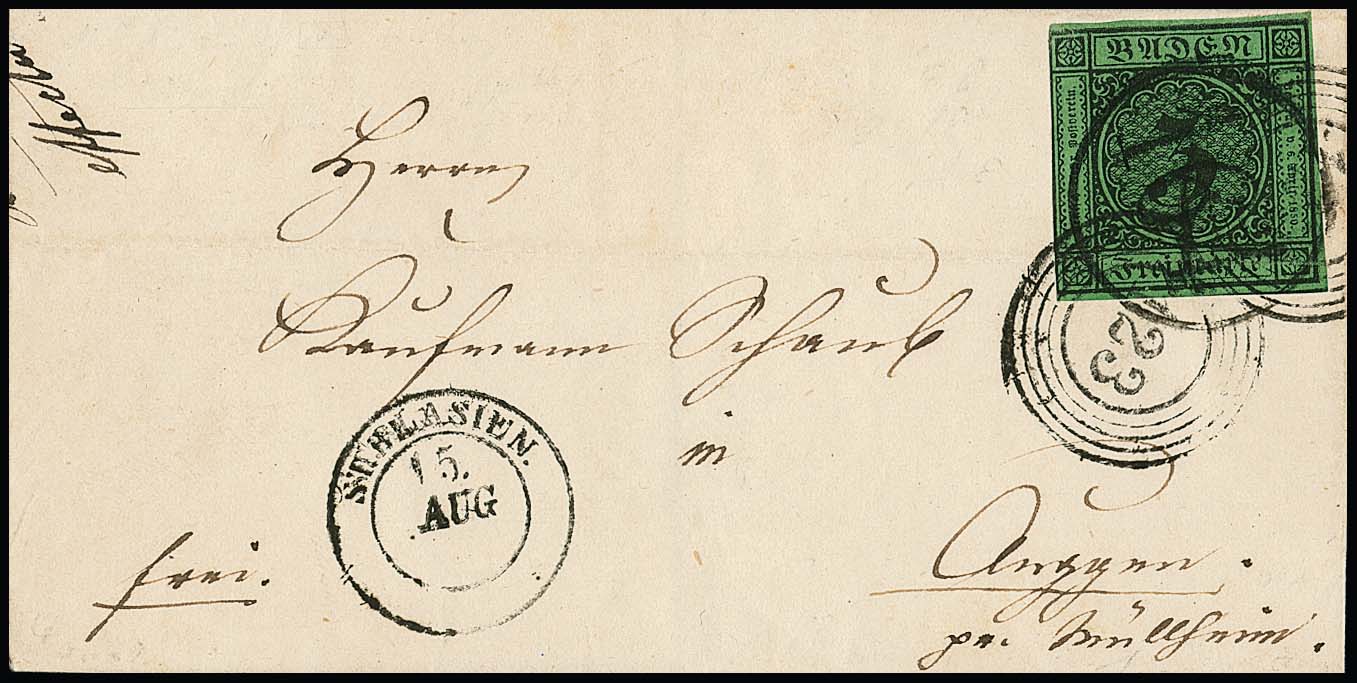 BADEN
Postverein.
Freimarke.
Herrn
Kaufmann Schaub
in
Auggen.
pr. Müllheim.
frei.
ST.BLASIEN.
15.
AUG
23